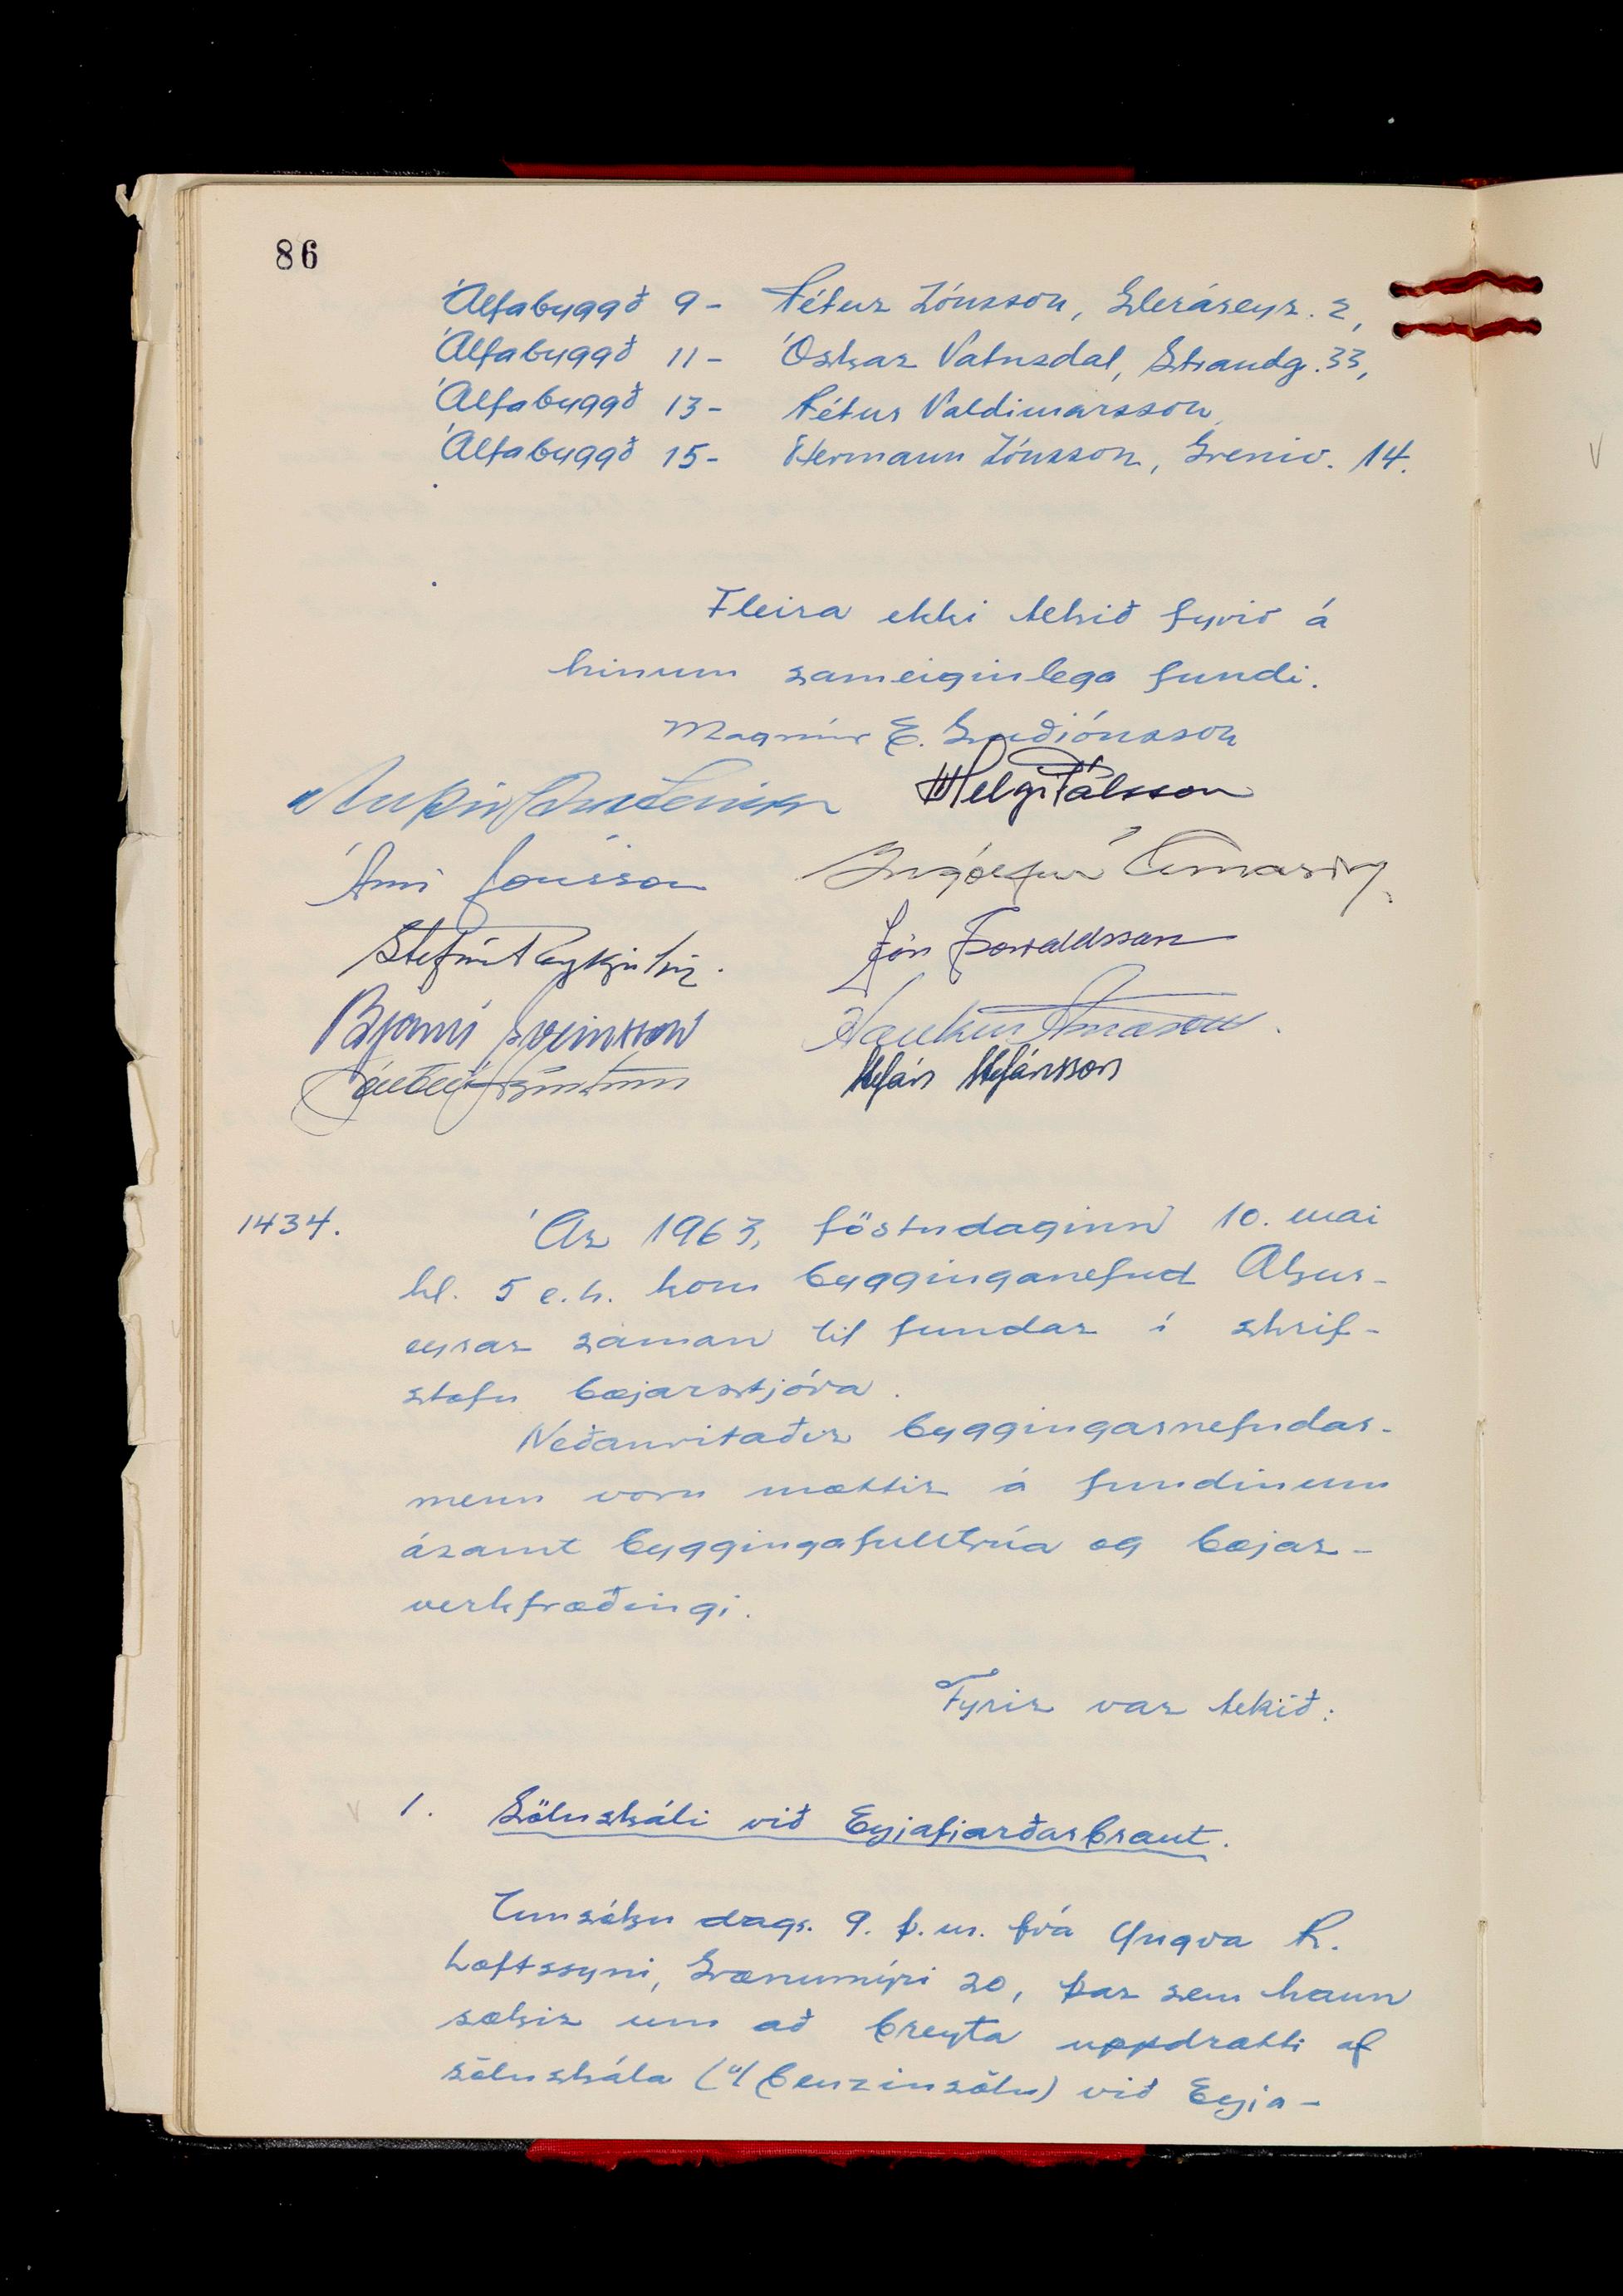 86
Álfabyggð 9 - Pétur Jónsson, Gleráreyr. 2,
Álfabyggð 11 - Óskar Vatnsdal, Strandg. 33,
Álfabyggð 13 - Pétur Valdimarsson,
Álfabyggð 15 - Hermann Jónsson, Greniv. 14.
Fleira ekki tekið fyrir á
hinum sameiginlega fundi.
Magnús E. Guðjónsson
Helgi Pálsson
Árni Jónsson Ingólfur Árnason
Stefán Reykjalín. Jón Þorvaldsson
Bjarni Sveinsson Haukur Árnason.
Stefán Stefánsson
1434. Ár 1963, föstudaginn 10. mai
kl. 5 e.h. kom bygginganefnd Akur-
eyrar saman til fundar í skrif-
stofu bæjarstjóra.
Neðanritaðir byggingarnefndar-
menn voru mættir á fundinum
ásamt byggingafulltrúa og bæjar-
verkfræðingi.
Fyrir var tekið:
1. Söluskáli við Eyjafjarðarbraut.
Umsókn dags. 9. þ.m. frá Yngva R.
Loftssyni, Grænumýri 20, þar sem hann
sækir um að breyta uppdrætti af
söluskála (v/ benzinsölu) við Eyja-